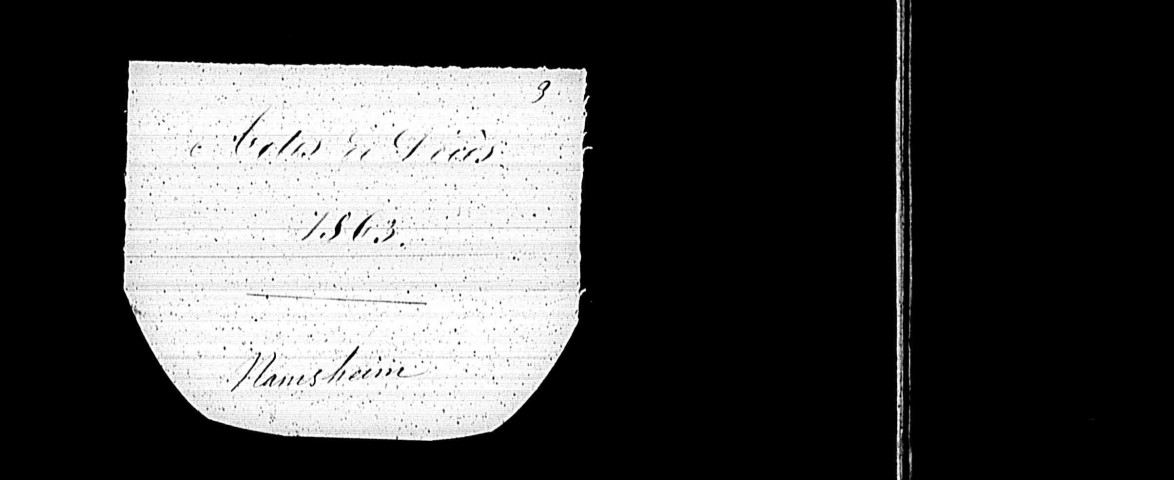 3
Actes de Décès
1863.
Namsheim